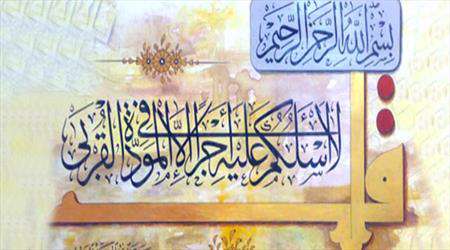 بِسْمِ اللهِ الرَّحْمٰنِ الرَّحِيمِ
قُل لَا أَسْئَلُكُمْ عَلَيْهِ أَجْرًا إِلَّا الْمَوَدَّةَ فِي الْقُرْبَى